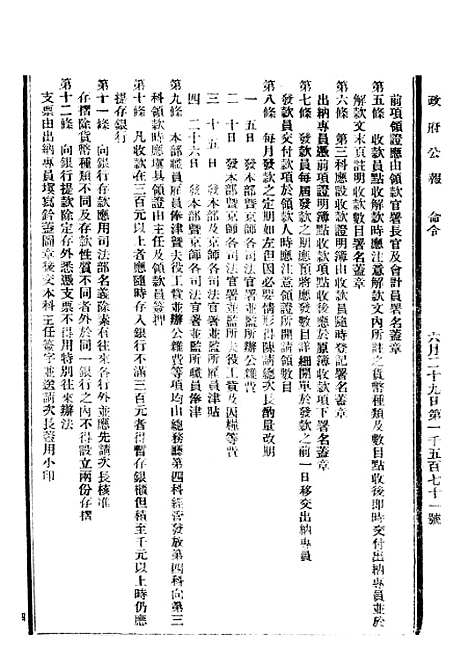 政府公報　命令
六月二十九日第一千五百七十一號
前項領證應由領款官署長官及會計員署名蓋章
第五條　收款員點收解款時應注意解款文內所註之貨幣種類及數目點收後卽時交付出納專員並於
解款文末頁註明收款數目署名蓋章
第六條　第三科應設收款證明簿由收款員隨時登記署名蓋章
出納專員憑前項證明簿點收款項點收後應於原簿收款項下署名蓋章
第七條　發款員每屆發款之期應將發款數目詳細開單於發款之前一日移交出納專員
發款員交付款項於領款人時應注意領證所開請領數目
第八條　每月發款之定期如左但因必要情形得陳請總次長酌量改期
一　五日　發本部暨京師各司法官署並監所辦公雜費
二　十日　發本部暨京師各司法官署並監所夫役工食及囚糧等費
三　十五日　發本部及京師各司法官署並監所職員津貼
四　二十六日　發本部暨京師各司法官署並監所職員俸津
第九條　本部職員雇員俸津暨夫役工食並辦公雜費等項均由總務廳第四科經管發放第四科向第三
科領款時應塡具領證由主任及領款員簽押
第十條　凡收款在三百元以上者應隨時存入銀行不滿三百元者得暫存銀櫃但積至千元以上時仍應
提存銀行
第十一條　向銀行存款應用司法部名義除素有往來各行外並應先請次長核准
存摺除貨幣種類不同及存款性質不同者外於同一銀行之內不得設立兩份存摺
第十二條　向銀行提款除定存外悉憑支票不得用特別往來辦法
支票由出納專員塡寫鈐蓋圖章後交本科主任簽字並送請次長蓋用小印